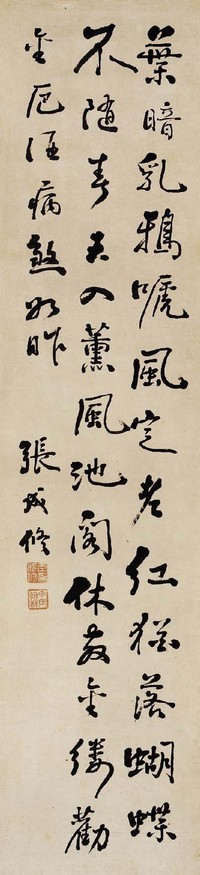 葉暗乳鴉嗁風定老紅猶落蝴蝶
不隨春去入薰風池閣休歌金縷勸
金卮酒病煞如昨
張成修